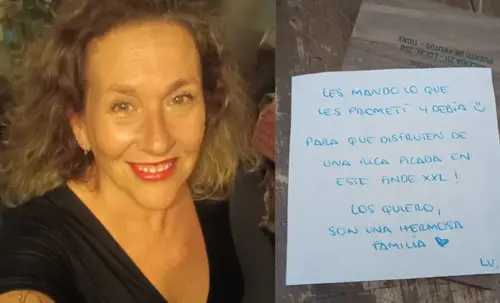 PUERTO DE FRUTOS - TIGRE
LES MANDO LO QUE
LES PROMETÍ Y DEBÍA
PARA QUE DISFRUTEN DE
UNA RICA PICADA EN
ESTE FINDE XXL!
LOS QUIERO,
SON UNA HERMOSA
FAMILIA
LU.